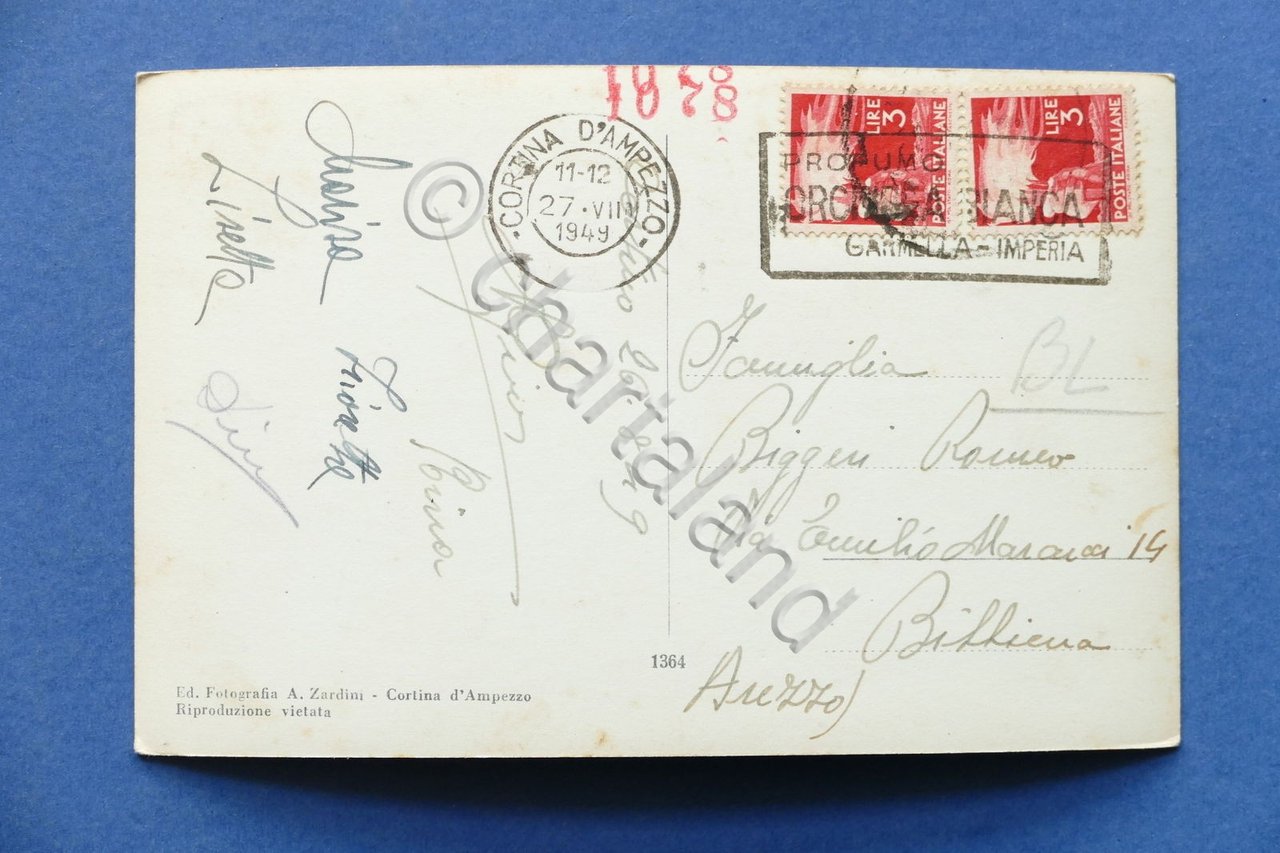 1078
1078
CORTINA D'AMPEZZO
11-12
27·VII
1949
LIRE 3
POSTE ITALIANE
LIRE 3
POSTE ITALIANE
PROFUMO
ORCHIDEA BIANCA
GARMELLA-IMPERIA
Lisetta
Rina
Famiglia
BL
Biggeri Romeo
Via Emilio 14
Bibbiena
Arezzo)
1364
Ed. Fotografia A. Zardini - Cortina d'Ampezzo
Riproduzione vietata
© chartaland